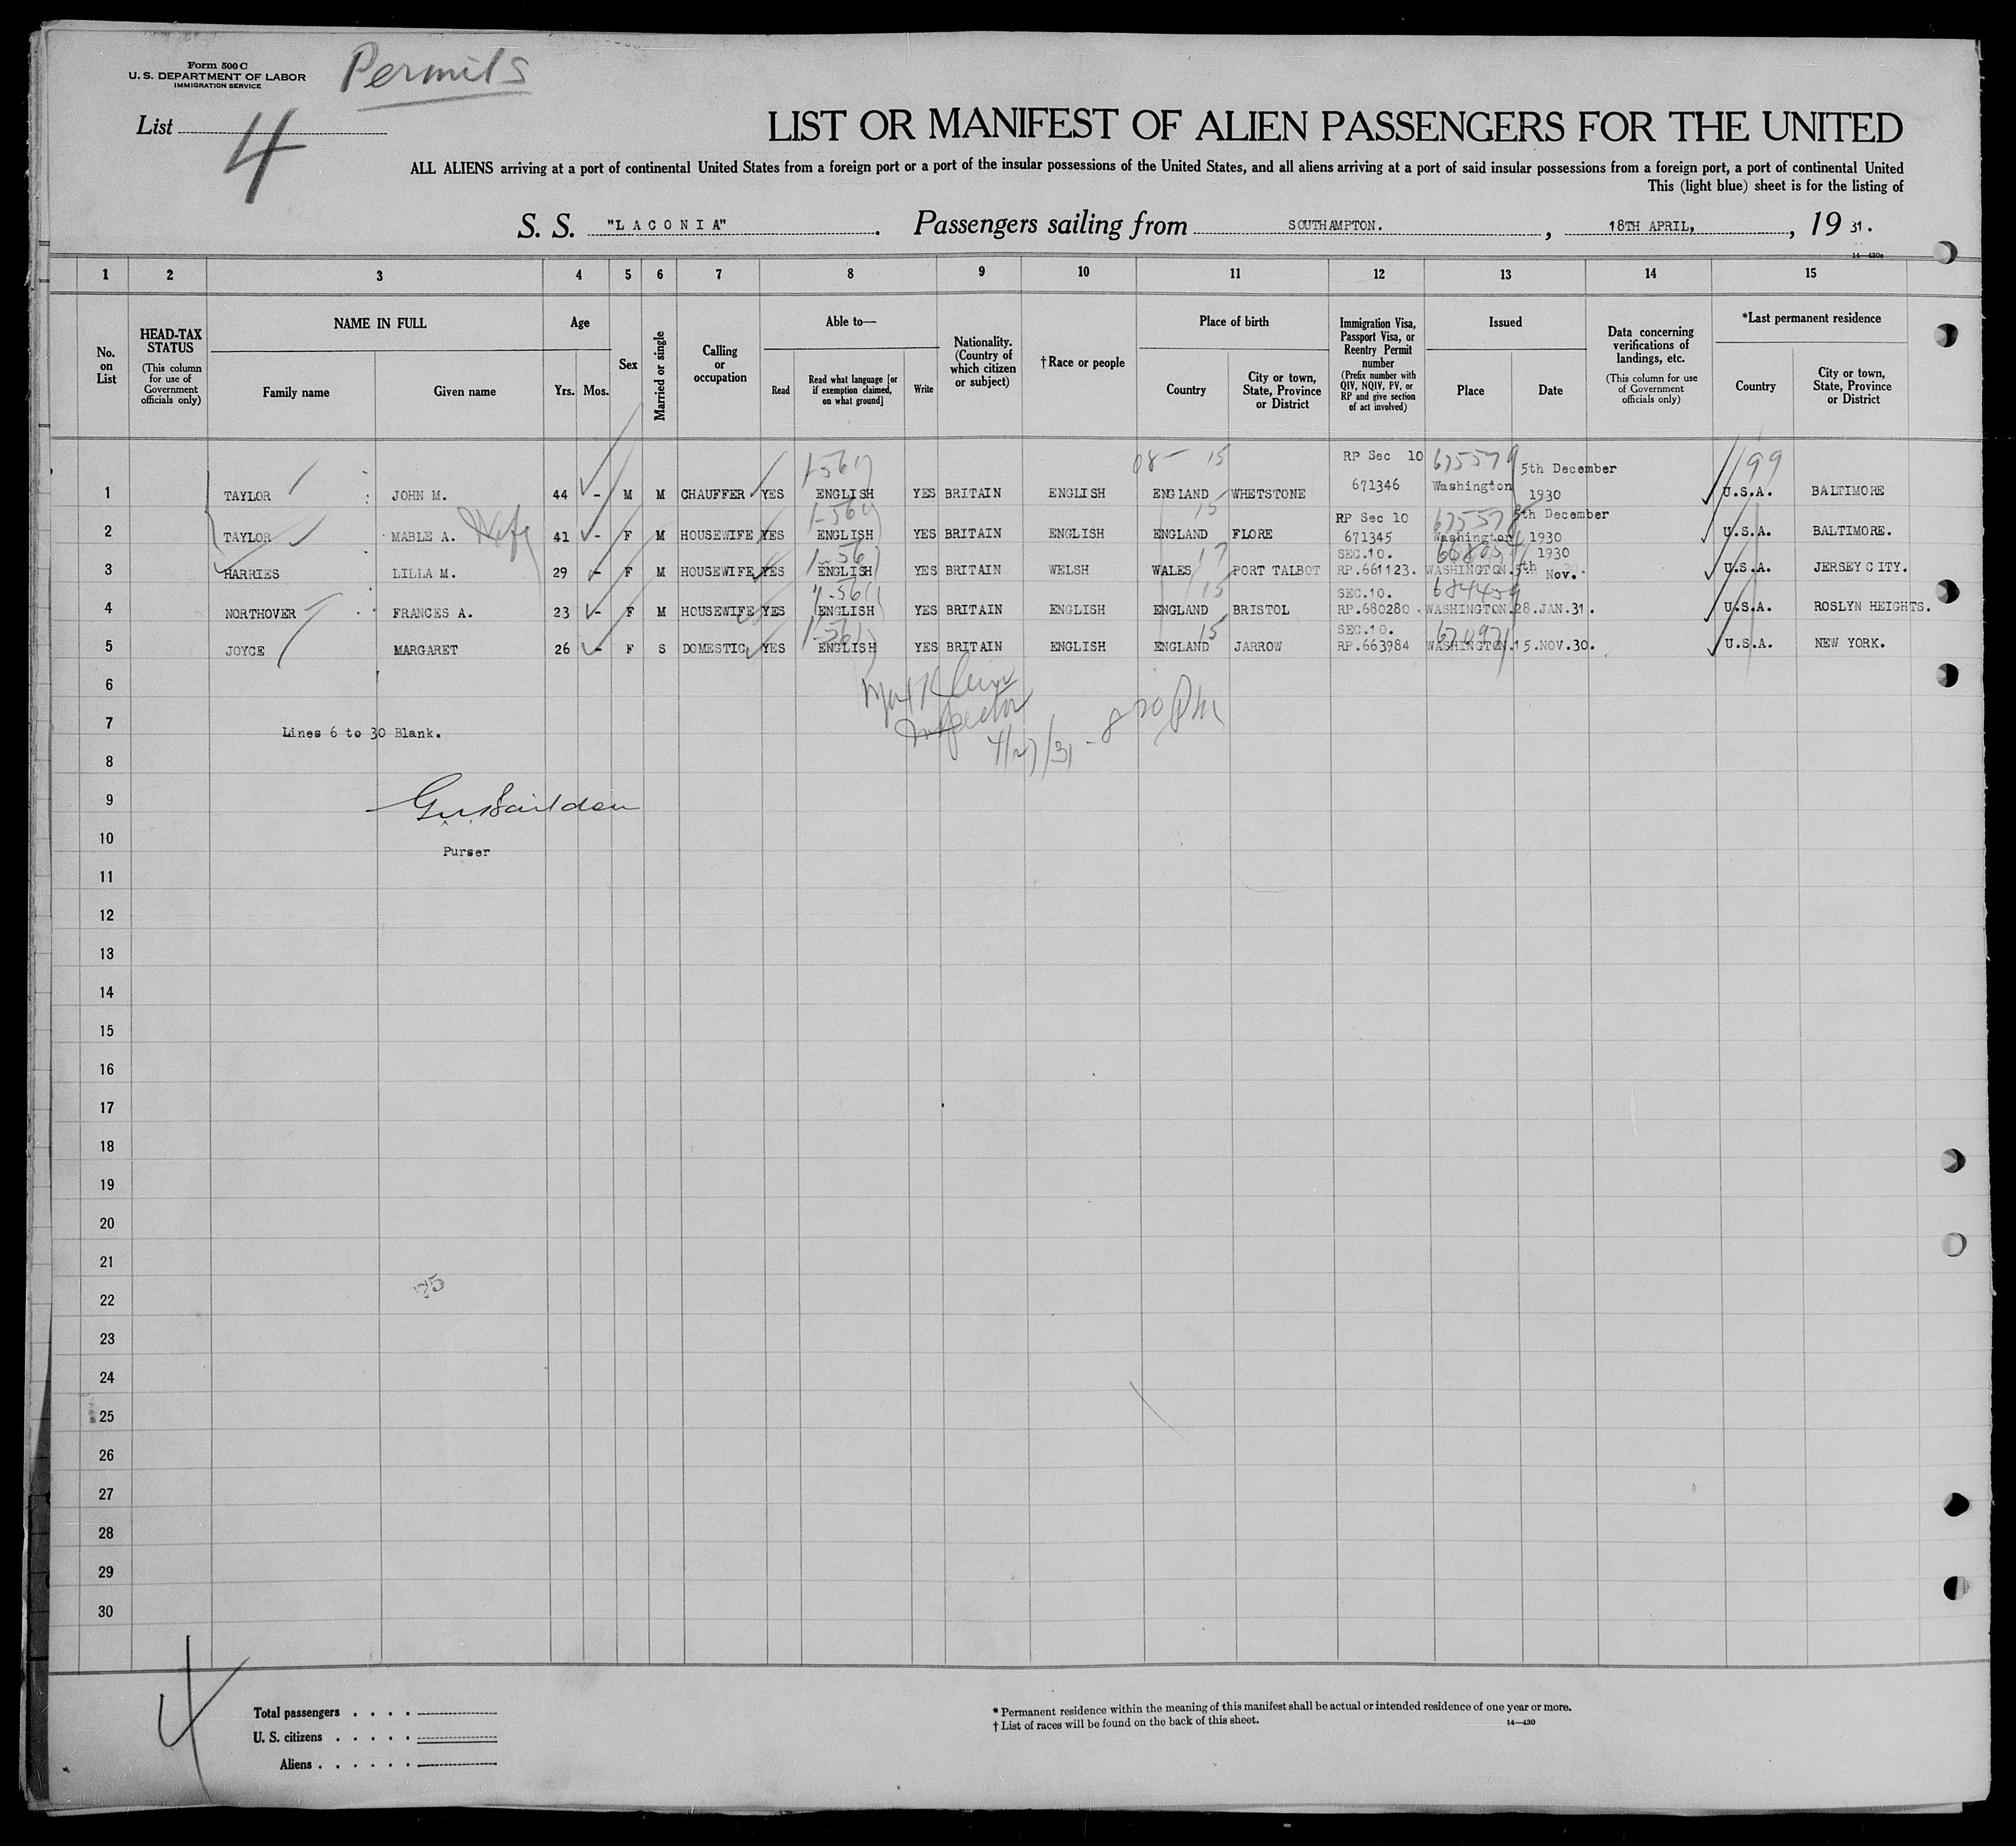 Form 500 C
U. S. DEPARTMENT OF LABOR
IMMIGRATION SERVICE
Permits
List 4
LIST OR MANIFEST OF ALIEN PASSENGERS FOR THE UNITED
ALL ALIENS arriving at a port of continental United States from a foreign port or a port of the insular possessions of the United States, and all aliens arriving at a port of said insular possessions from a foreign port, a port of continental United
This (light blue) sheet is for the listing of
S. S. "LACONIA". Passengers sailing from SOUTHAMPTON. , 18TH APRIL, , 19 31.
14—430c
1 2 3 4 5 6 7 8 9 10 11 12 13 14 15
No. on List
HEAD-TAX STATUS
(This column for use of Government officials only)
NAME IN FULL
Family name
Given name
Age
Yrs. Mos.
Sex
Married or single
Calling or occupation
Able to—
Read
Read what language [or if exemption claimed, on what ground]
Write
Nationality. (Country of which citizen or subject)
†Race or people
Place of birth
Country
City or town, State, Province or District
Immigration Visa, Passport Visa, or Reentry Permit number
(Prefix number with QIV, NQIV, PV, or RP and give section of act involved)
Issued
Place
Date
Data concerning verifications of landings, etc.
(This column for use of Government officials only)
*Last permanent residence
Country
City or town, State, Province or District
08- 15 199
1 TAYLOR JOHN M. 44 - M M CHAUFFER YES ENGLISH YES BRITAIN ENGLISH ENGLAND WHETSTONE RP Sec 10 671346 Washington 5th December 1930 U.S.A. BALTIMORE
15
2 TAYLOR MABLE A. Wife 41 - F M HOUSEWIFE YES ENGLISH YES BRITAIN ENGLISH ENGLAND FLORE RP Sec 10 671345 Washington 5th December 1930 U.S.A. BALTIMORE.
17
3 HARRIES LILLA M. 29 - F M HOUSEWIFE YES ENGLISH YES BRITAIN WELSH WALES PORT TALBOT SEC.10. RP.661123. WASHINGTON. 5th Nov. 1930 U.S.A. JERSEY CITY.
15
4 NORTHOVER FRANCES A. 23 - F M HOUSEWIFE YES ENGLISH YES BRITAIN ENGLISH ENGLAND BRISTOL SEC.10. RP.680280. WASHINGTON. 28.JAN.31. U.S.A. ROSLYN HEIGHTS.
15
5 JOYCE MARGARET 26 - F S DOMESTIC YES ENGLISH YES BRITAIN ENGLISH ENGLAND JARROW SEC.10. RP.663984 WASHINGTON. 15.NOV.30. U.S.A. NEW YORK.
6
Inspector
4/27/31 - 8
7
Lines 6 to 30 Blank.
8
9
10
Purser
11
12
13
14
15
16
17
18
19
20
21
22
23
24
25
26
27
28
29
30
4
Total passengers . . . .
U. S. citizens . . . . .
Aliens . . . . . .
* Permanent residence within the meaning of this manifest shall be actual or intended residence of one year or more.
† List of races will be found on the back of this sheet.
14—430